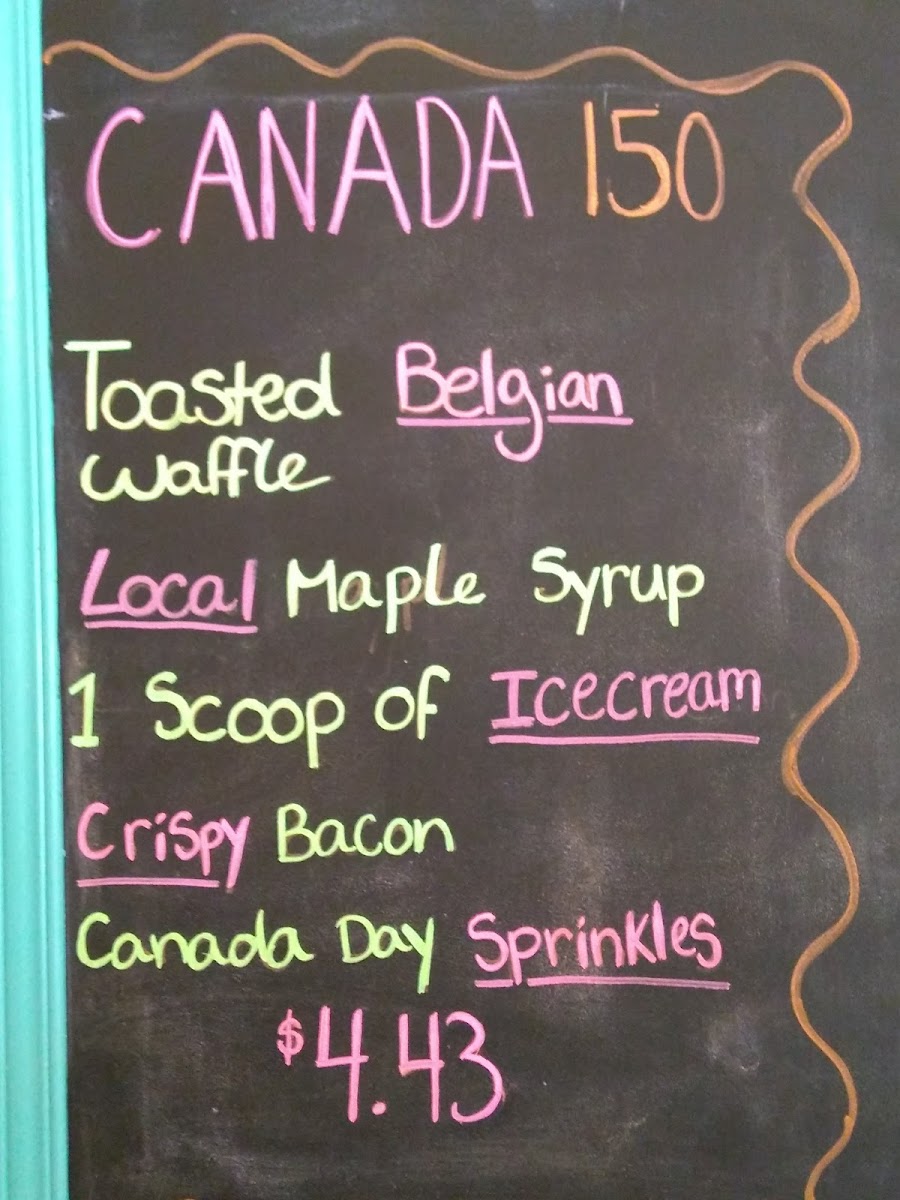 CANADA 150
Toasted Belgian
waffle
Local Maple Syrup
1 Scoop of Icecream
Crispy Bacon
Canada Day Sprinkles
$4.43